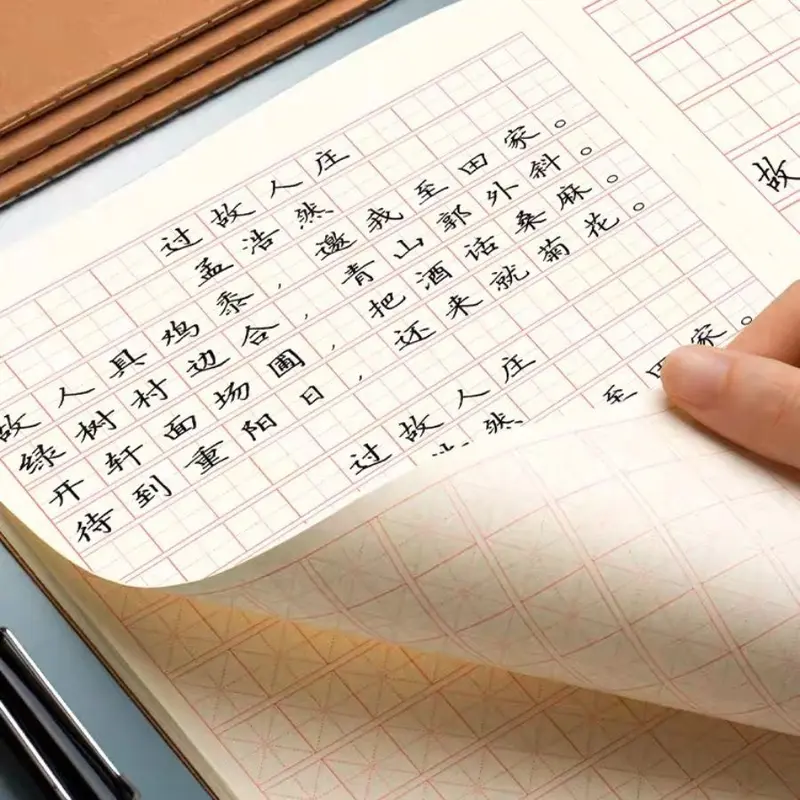 过故人庄
孟浩然
故人具鸡黍，邀我至田家。
绿树村边合，青山郭外斜。
开轩面场圃，把酒话桑麻。
待到重阳日，还来就菊花。
过故人庄
浩然
至田家。
故